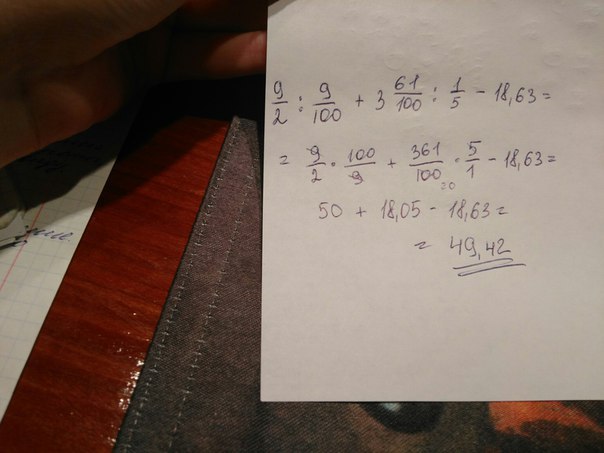 9/2 : 9/100 + 3 61/100 : 1/5 - 18,63 =
= 9/2 · 100/9 + 361/100 · 5/1 - 18,63 =
20
50 + 18,05 - 18,63 =
= 49,42